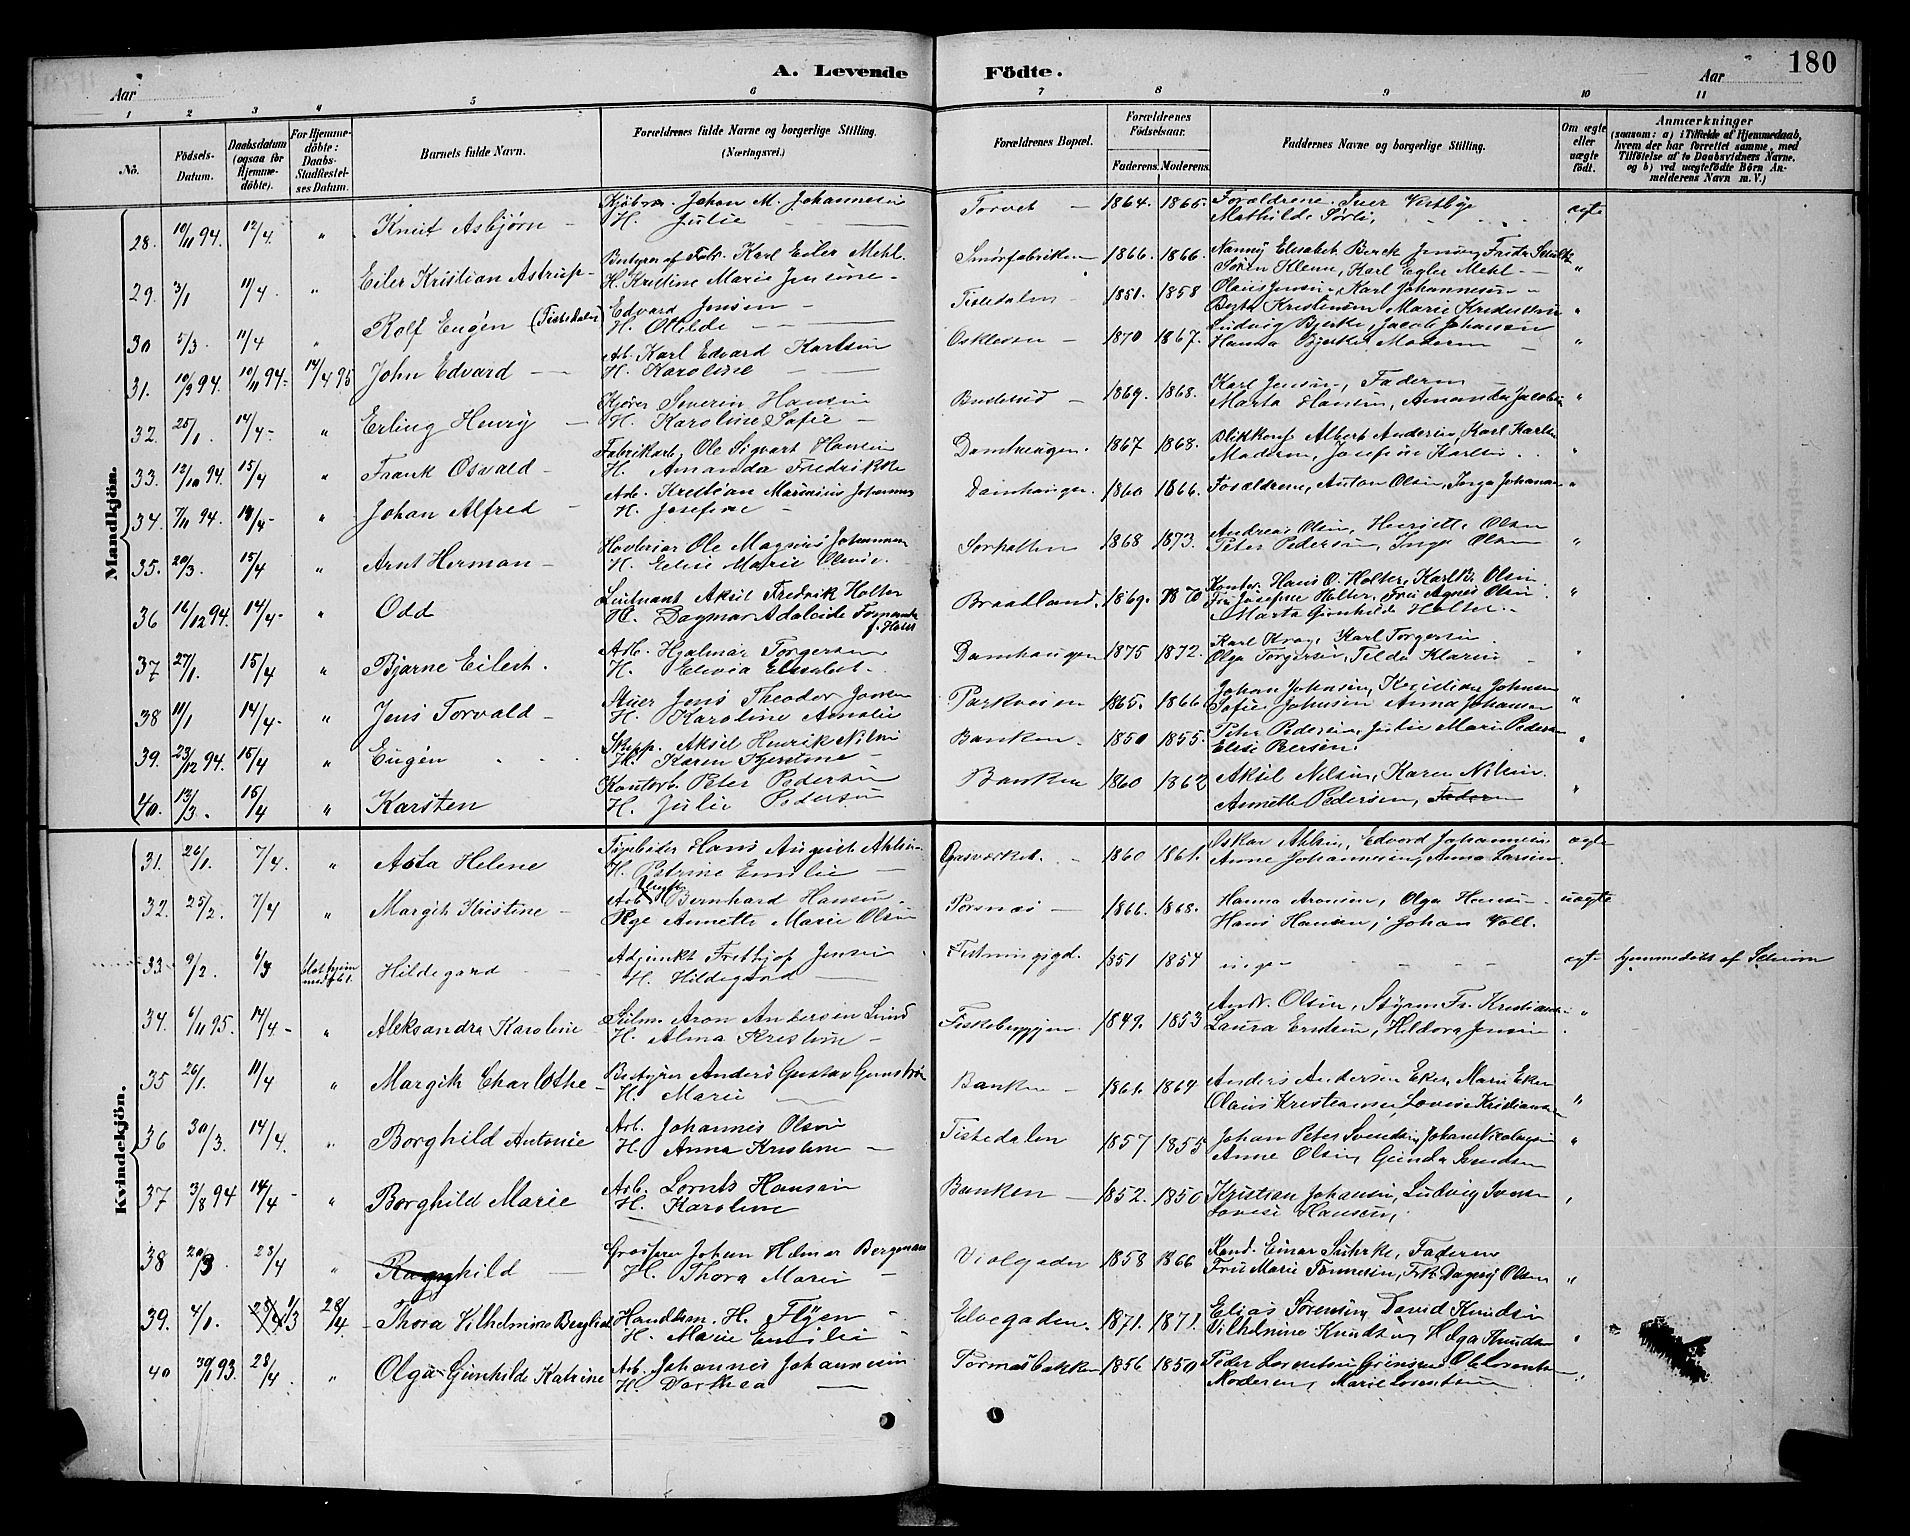 A. Levende Födte.
180
Aar
Aar
1 2 3 4 5 6 7 8 9 10 11
No.
Födsels-Datum.
Daabsdatum (ogsaa for Hjemmedöbte).
For Hjemmedöbte: Daabs-Stadfæstelses Datum.
Barnets fulde Navn.
Forældrenes fulde Navne og borgerlige Stilling. (Næringsvei.)
Forældrenes Bopæl.
Forældrenes Födselsaar.
Faderens. Moderens.
Faddernes Navne og borgerlige Stilling.
Om ægte eller uægte födt.
Anmærkninger (saasom: a) i Tilfælde af Hjemmedaab, hvem der har forrettet samme, med Tilföielse af to Daabsvidners Navne. og b) ved uægtefödte Börn Anmelderens Navn m. V.)
Mandkjön.
28. 10/11 94. 12/4. " Knut Asbjørn Johan M. Johannesen H. Julie Torvet 1864. 1865. Forældrene, Iver Vestbye Mathilde Sørli, ægte
29. 3/1 11/4 " Eiler Kristian Astrup Bestyrer af Karl Eiler Mehl. H. Kristine Marie Jensine Smørfabriken 1866. 1866. Nanny Elisabet Berck Jensen, Frida Søren Klenn, Karl Egler Mehl "
30 5/3. 11/4 " Rolf Eugén (Tistedalen) Edvard Jensen H. Otilde Tistedalen 1851. 1858 Olaus Jensen, Karl Johannesen Berta Kristensen Marie Kristensen "
31. 10/9 94. 10/11 94. 14/4 95 John Edvard Arb. Karl Edvard Karlsen H. Karoline 1870 1867. Ludvig Bjerke, Jacob Johansen Hanna Bjerke Moderen "
32. 25/1. 14/4 " Erling Henry Kjører Severin Hansen H. Karoline Sofie 1869. 1868. Karl Jensen, Faderen Marta Hansen, Amanda Jacobsen "
33. 12/10 94. 15/4 " Frank Osvald Fabrikarb. Ole Sigvart Hansen H. Amanda Fredrikke Damhaugen. 1867 1868. Albert Andersen, Karl Karlsen Moderen, Josefine Karlsen "
34. 7/11 94. " Johan Alfred Arb. Kristian Marinius Johannes H. Josefine Damhaugen. 1860 1866. Forældrene, Anton Olsen, Inga Johansen "
35. 20/3. 15/4 " Arnt Herman Ole Magnus Johannesen H. Eline Marie Olsen. Sorhalten 1868 1873. Andreas Olsen, Henriette Olsen Peter Pedersen, Inga Olsen "
36 16/12 94. 14/4 " Odd Leutnant Aksel Fredrik Holter H. Dagmar Adaleide f. Holst Braatland. 1869. 1870 Kontor. Hans O. Holter, Karl B. Olsen. Fru Josefine Holter, Fru Agnes Olsen Marta Gunhilde Holter. "
37 27/1. 15/4 " Bjarne Eilert. Arb. Hjalmar Torgersen H. Elevia Elisabet. Damhaugen 1875 1872. Karl Krag, Karl Torgersen Olga Torgersen, Tilda Klaren "
38 11/1 14/4 " Jens Torvald Stuer Jens Theodor Jansen H. Karoline Amalie Parkveien 1865. 1866. Johan Johnsen, Kristian Johnsen Sofie Johnsen Anna Johansen "
39. 23/12 94. 15/4 " Eugén Skipp. Aksel Henrik Nilsen H. Karen Kjerstine Banken 1850 1855. Peter Pedersen, Julie Marie Pedersen Elise Bersen. "
40. 13/3. 15/4 " Karsten Kontorb. Peter Pedersen H. Julie Pedersen Banken 1860 1862 Aksel Nilsen, Karen Nilsen. Annette Pedersen, Faderen "
Kvindekjön.
31. 26/1. 7/4. " Asta Helene Hans August Ahlsen H. Petrine Emilie Gasværket. 1860 1861. Oskar Ahlsen, Edvard Johannesen Anne Johannesen, Anna Larsen ægte
32. 25/2. 7/4 " Margit Kristine Arb. Ungk. Bernhard Hansen Pige Annette Marie Olsen Porsnes 1866. 1868. Hanna Aronsen, Olga Hansen Hans Hansen, Johan Voll. uægte
33. 9/2. 6/3 Hildegard Adjunkt Frethjof Jensen H. Hildegard Festningsgd. 1851 1854 ingen ægte hjemmedøbt af
34. 6/11 95. 14/4 " Aleksandra Karoline Aron Andersen Lund H. Alma Kristine Fiskebryggen. 1849. 1853 Andr. Olsen, Styrm. Fr. Kristiansen Laura Erntsen, Hildora Jensen "
35 26/1. 11/4 " Margith Charlothe Bestyrer Anders Gustav H. Marie Banken 1861. 1864 Anders Andersen Eker, Marie Eker Olaus Kristiansen Lovise Kristiansen "
36 30/3. 14/4. " Borghild Antonie Arb. Johannes Olsen H. Anna Kristine Tistedalen 1857 1855 Johan Peter Svendsen, Johan Nicolaysen Anne Olsen, Gunda Svendsen "
37 3/8 94 14/4 " Borghild Marie Arb. Lornts Hansen H. Karoline Banken 1852. 1850 Kristian Johansen, Ludvig Lovise Hansen, "
38 20/3. 23/4 " Ragnhild Grosserer Johan Helmer Bergman H. Thora Marie Violgaden 1858 1866 Kand. Einar Suhrke, Faderen Fru Marie Tønnesen, Frk. Dagny Olsen "
39. 4/1. 28/4 Thora Vilhelmine Berglioth Handelsm. H. Flyen H. Marie Emilie Elvegaden. 1871. 1871. Elias Sørensen, David Knudsen Vilhelmine Knudsen, Helga Knudsen "
40 93. 23/4. " Olga Gunhilde Katrine Arb. Johannes Johannesen H. Dorthea Tormasbakken 1856 1850 Peder Lorentsen Grønsen, Moderen, Marie Lorentsen "